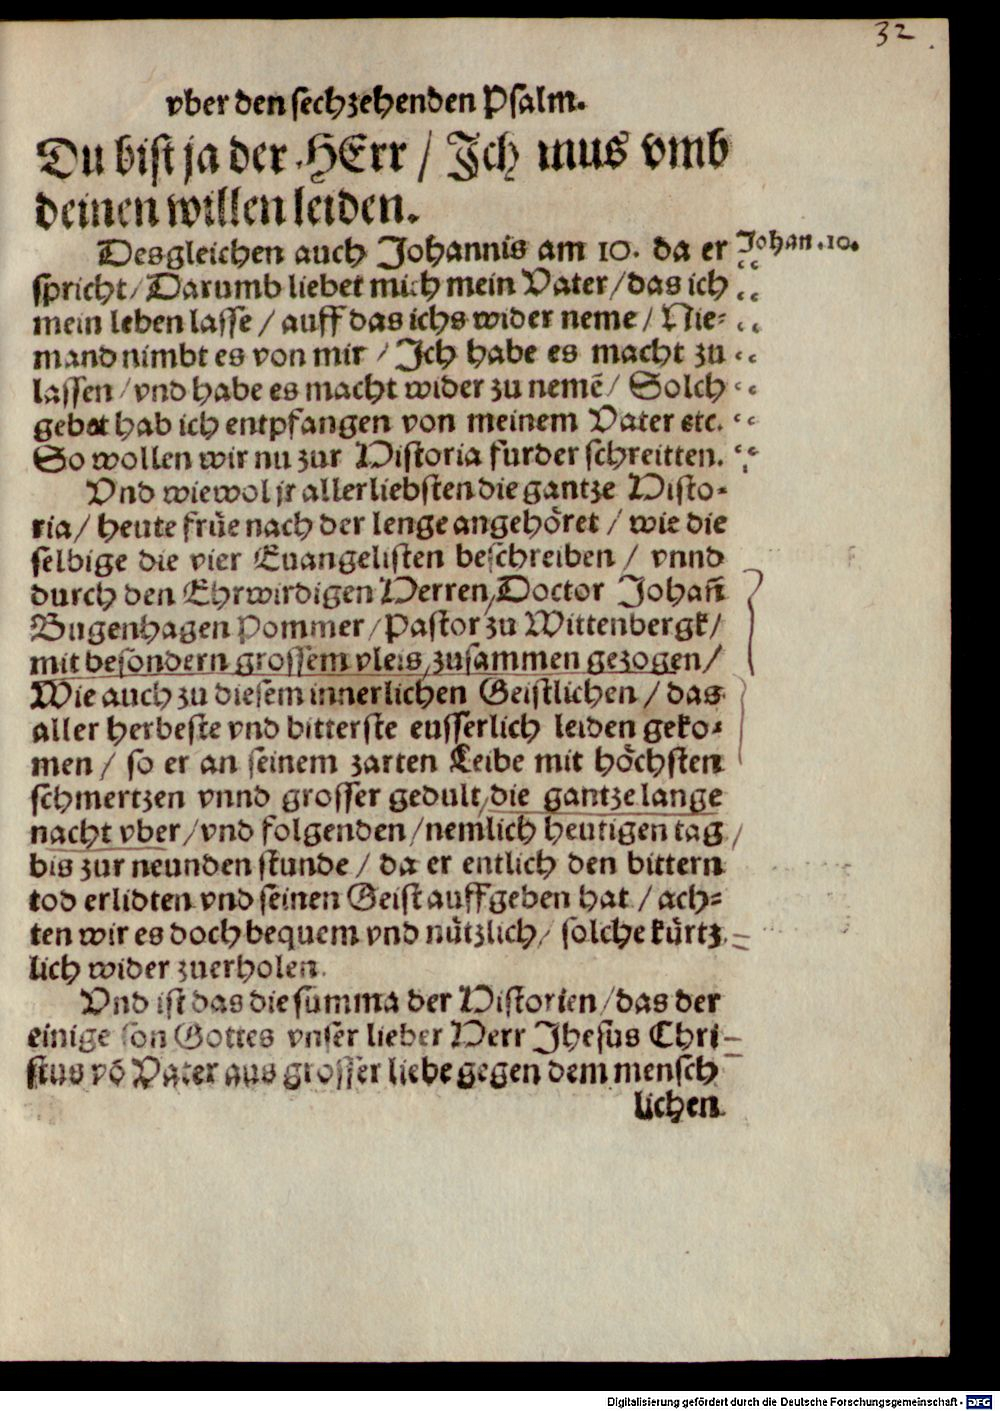 32
vber den sechzehenden Psalm.
Du bist ja der HErr / Ich mus vmb
deinen willen leiden.
Desgleichen auch Johannis am 10. da er
Johan. 10.
spricht / Darumb liebet mich mein Vater / das ich
mein leben lasse / auff das ichs wider neme / Nie-
mand nimbt es von mir / Ich habe es macht zu
lassen / vnd habe es macht wider zu nemē / Solch
gebot hab ich entpfangen von meinem Vater etc.
So wollen wir nu zur Historia furder schreitten.
Vnd wiewol jr allerliebsten die gantze Histo-
ria / heute früe nach der lenge angehöret / wie die
selbige die vier Euangelisten beschreiben / vnnd
durch den Ehrwirdigen Herren, Doctor Johañ
Bugenhagen Pommer / Pastor zu Wittenbergk /
mit besondern grossem vleis, zusammen gezogen /
Wie auch zu diesem innerlichen Geistlichen / das
aller herbeste vnd bitterste eusserlich leiden geko-
men / so er an seinem zarten Leibe mit höchsten
schmertzen vnnd grosser gedult, die gantze lange
nacht vber / vnd folgenden / nemlich heutigen tag /
bis zur neunden stunde / da er entlich den bittern
tod erlidten vnd seinen Geist auffgeben hat / ach-
ten wir es doch bequem vnd nützlich / solche kürtz-
lich wider zuerholen.
Vnd ist das die summa der Historien / das der
einige son Gottes vnser lieber Herr Jhesus Chri-
stus vō Vater aus grosser liebe gegen dem mensch
lichen
Digitalisierung gefördert durch die Deutsche Forschungsgemeinschaft - DFG